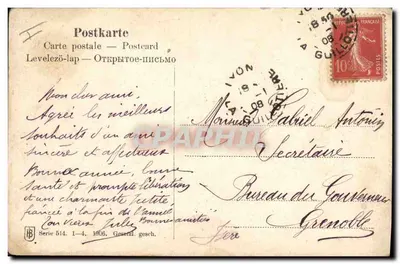 Postkarte
Carte postale — Postcard
Levelező-lap — Открытое-письмо
Mon cher ami.
Agrée les meilleurs
souhaits d'un ami
sincère et affectueux
Bonne année, bonne
santé et prompte libération
et une charmante petite
fiancée à la fin de l'année
Jules Bonnes amitiés
Serie 514. 1—4. 1906. Gesetzl. gesch.
10
LYON
GUILLOTIERE
Monsieur Gabriel Antonin
Secrétaire
Bureau du Gouverneur
Grenoble
Isère